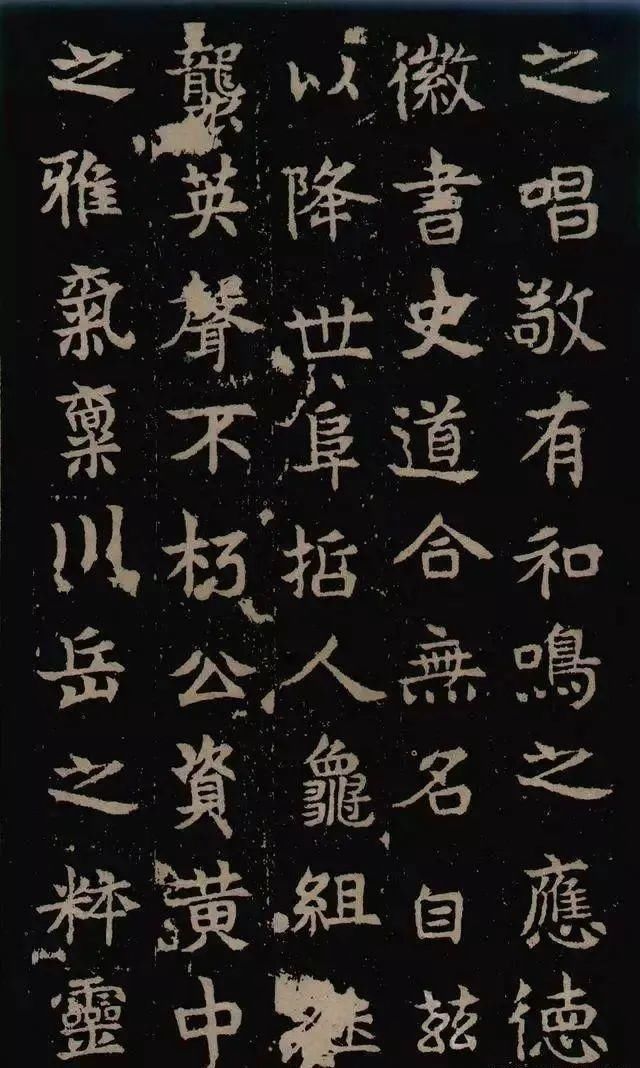 之唱敬有和鳴之應德
徽書史道合無名自茲
以降世阜哲人龜組継
襲英聲不朽公資黃中
之雅氣稟川岳之粋靈